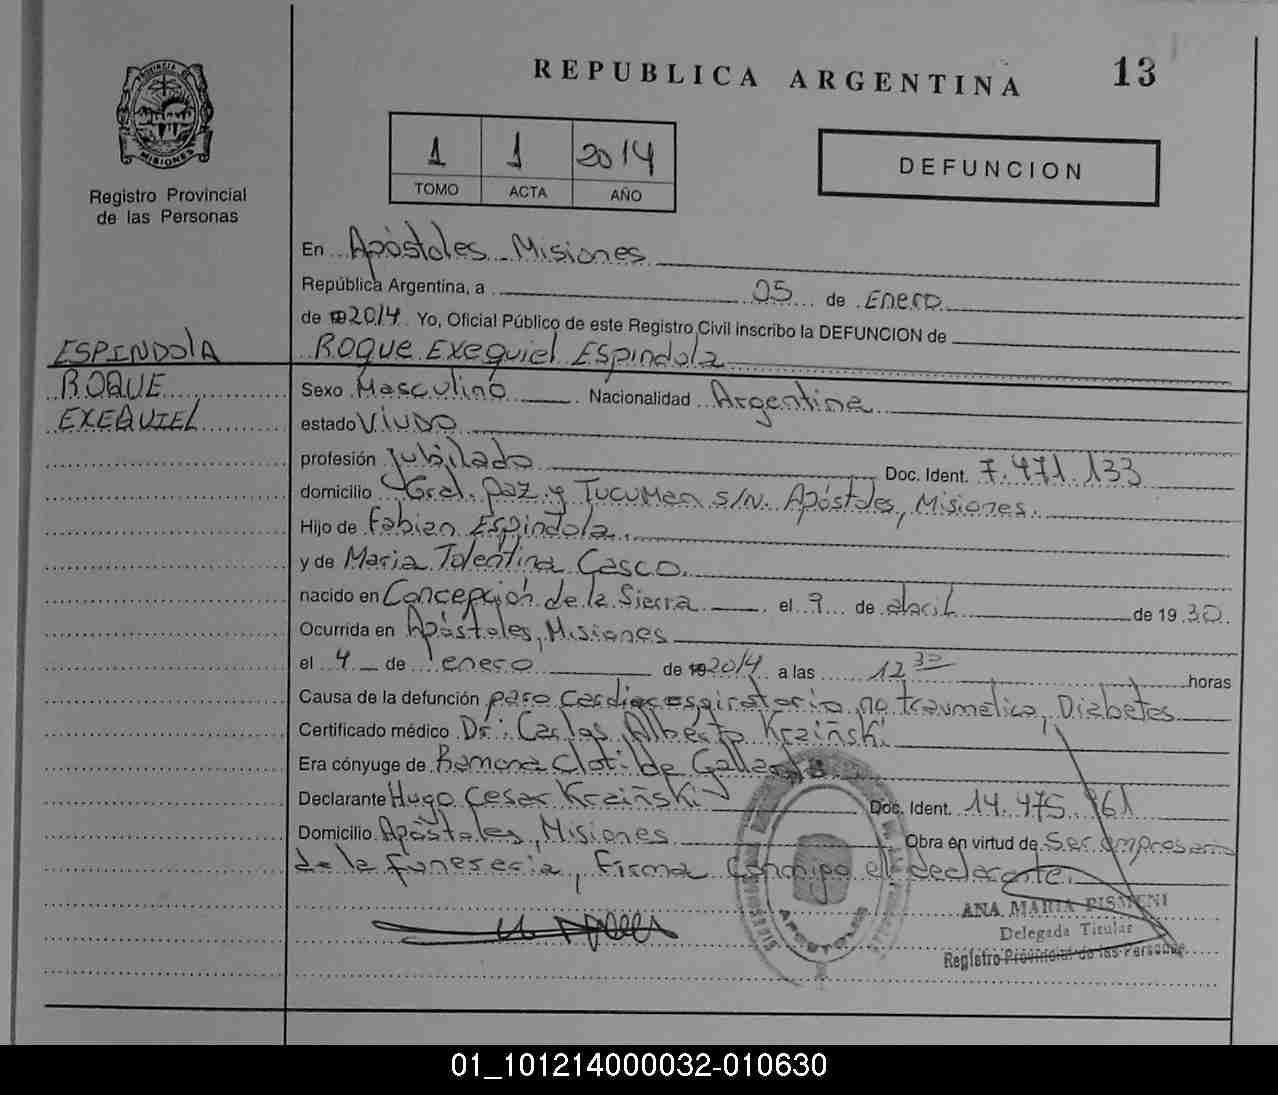 REPUBLICA ARGENTINA
13
PROVINCIA DE
MISIONES
Registro Provincial
de las Personas
1 1 2014
TOMO ACTA AÑO
DEFUNCION
En Apóstoles Misiones
República Argentina, a 05 de Enero
de 2014 Yo, Oficial Público de este Registro Civil inscribo la DEFUNCION de
Roque Exequiel Espindola
ESPINDOLA
ROQUE
EXEQUIEL
Sexo Masculino Nacionalidad Argentina
estado Viudo
profesión Jubilado Doc. Ident. 7.471.133
domicilio Gral. Paz y Tucuman s/N. Apóstoles, Misiones.
Hijo de Fabian Espindola.
y de Maria Tolentina Casco.
nacido en Concepción de la Sierra el 9 de abril de 1930.
Ocurrida en Apóstoles, Misiones
el 4 de enero de 2014 a las 12 30 horas
Causa de la defunción paro cardiorespiratorio no traumatico, Diabetes
Certificado médico Dr. Carlos Alberto Kraiñski
Era cónyuge de Ramona Clotilde Gallardo
Declarante Hugo Cesar Kraiñski Doc. Ident. 14.475.961
Domicilio Apóstoles, Misiones Obra en virtud de Ser empresario
de la funeraria, Firma Conmigo el declarante.
APOSTOLES
ANA MARIA PISMENI
Delegada Titular
Registro Provincial de las Personas
01_101214000032-010630